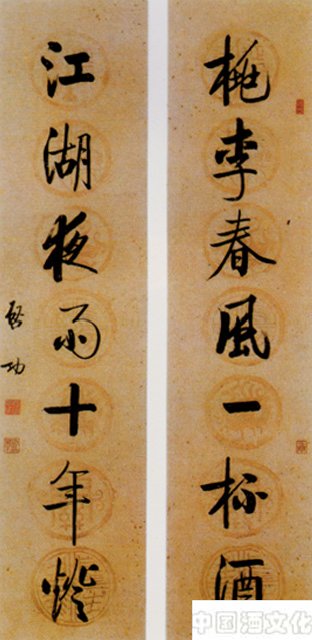 桃李春風一杯酒
江湖夜雨十年燈
啓功
中国酒文化